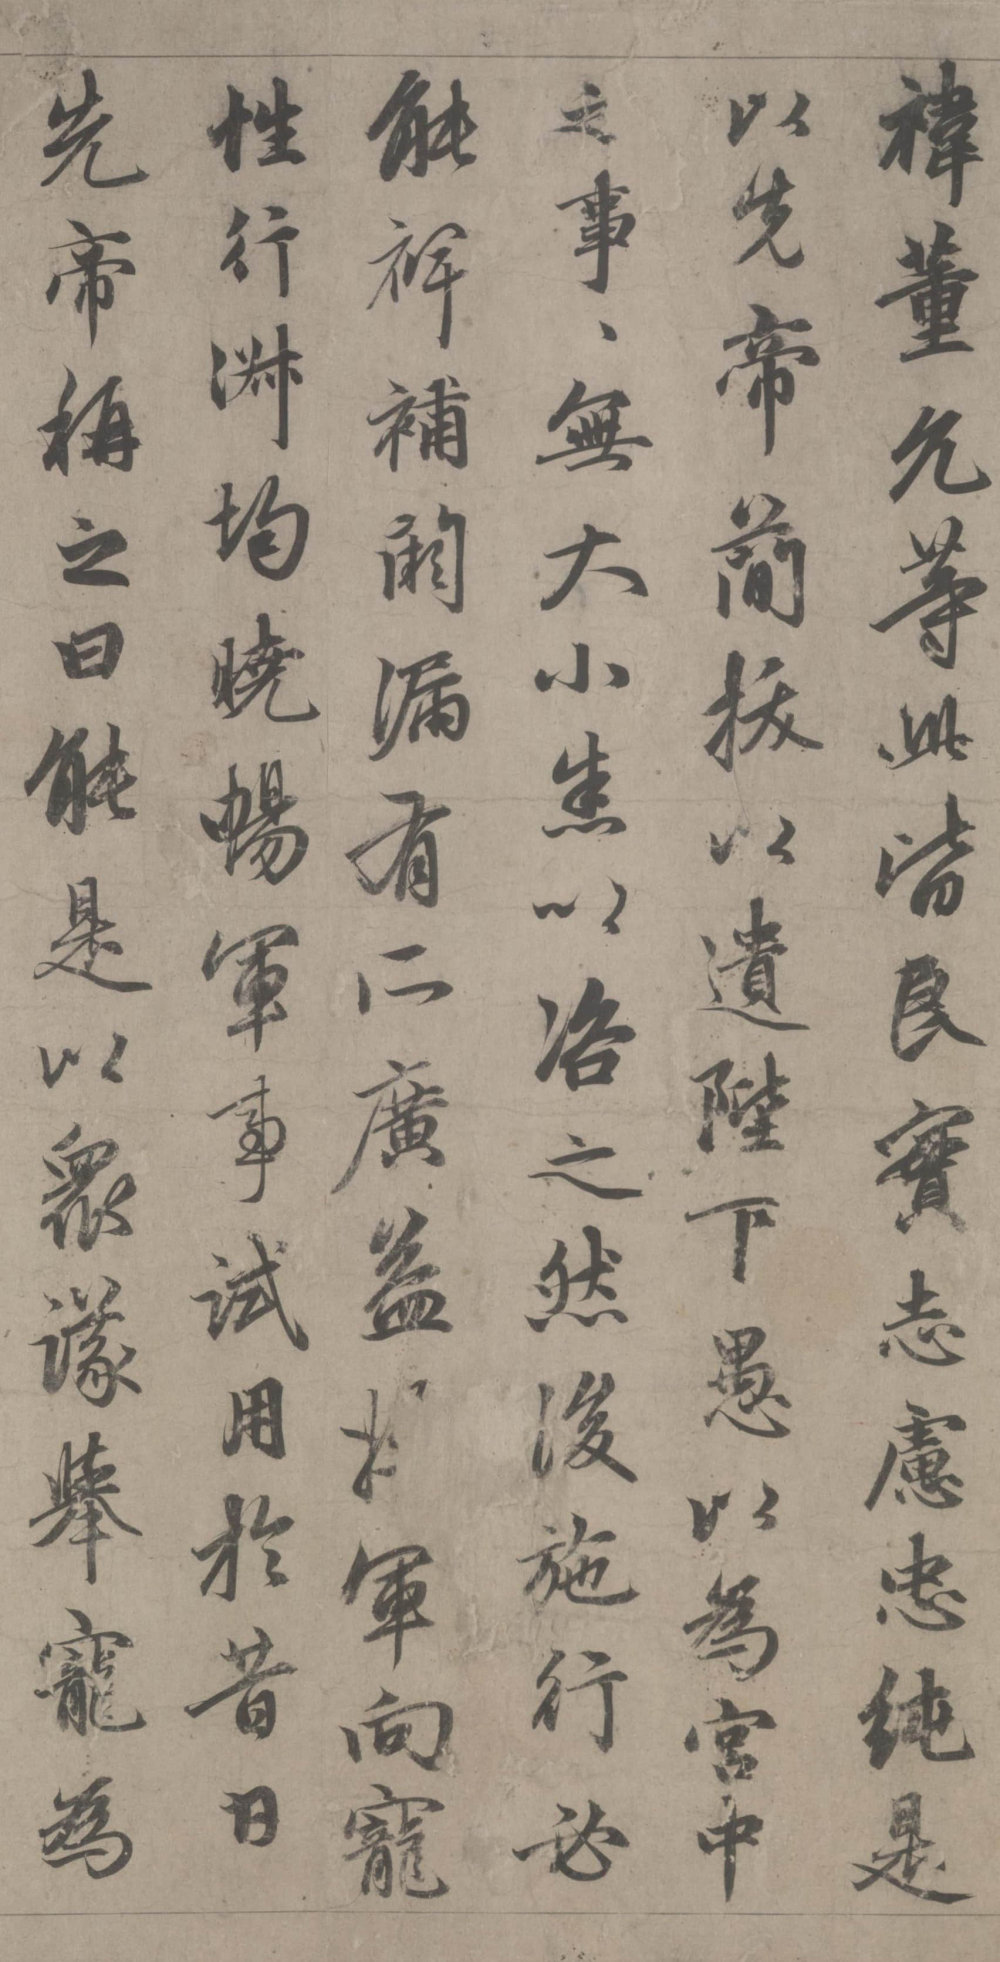 禕董允等此皆良實志慮忠純是
以先帝簡拔以遺陛下愚以為宮中
之事、無大小悉以咨之然後施行必
能裨補闕漏有所廣益將軍向寵
性行淑均曉暢軍事試用於昔日
先帝稱之曰能是以衆議舉寵為